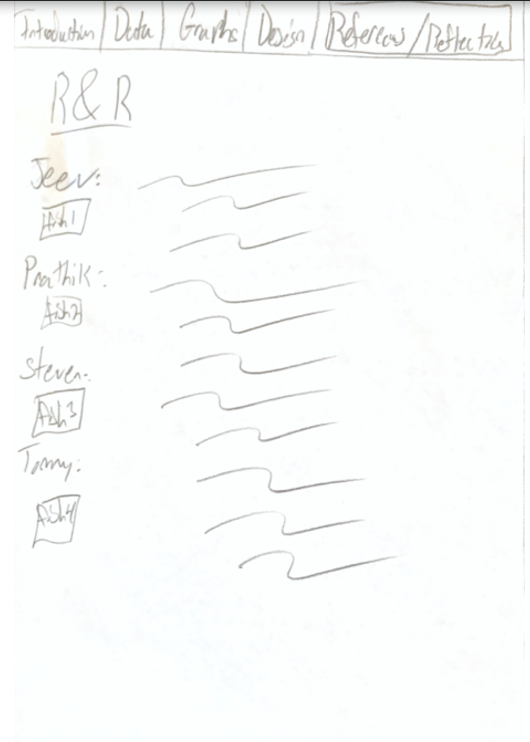 Introduction Data Graphs Design References/Reflections
R&R
Jeev:
Ash1
Prathik:
Ash2
Steven:
Ash3
Tommy:
Ash4